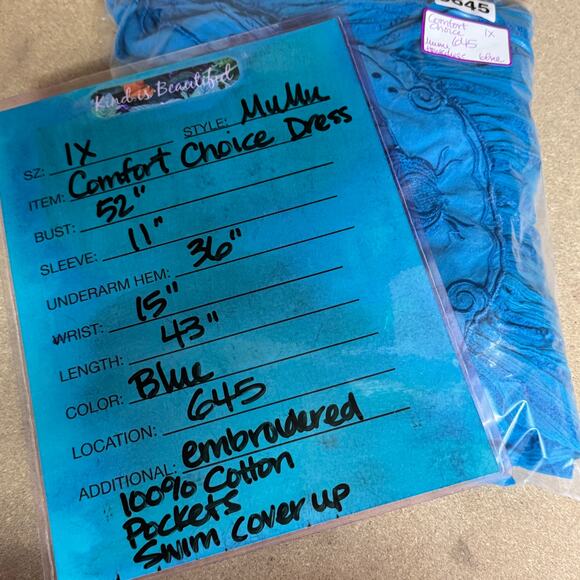 Kind is Beautiful
SZ: 1X STYLE: MuMu
ITEM: Comfort Choice Dress
BUST: 52"
SLEEVE: 11"
UNDERARM HEM: 36"
WRIST: 15"
LENGTH: 43"
COLOR: Blue
LOCATION: 645
ADDITIONAL: embroidered
100% Cotton
Pockets
Swim cover up
645
Comfort 1X
Choice
Mumu 645
Blue